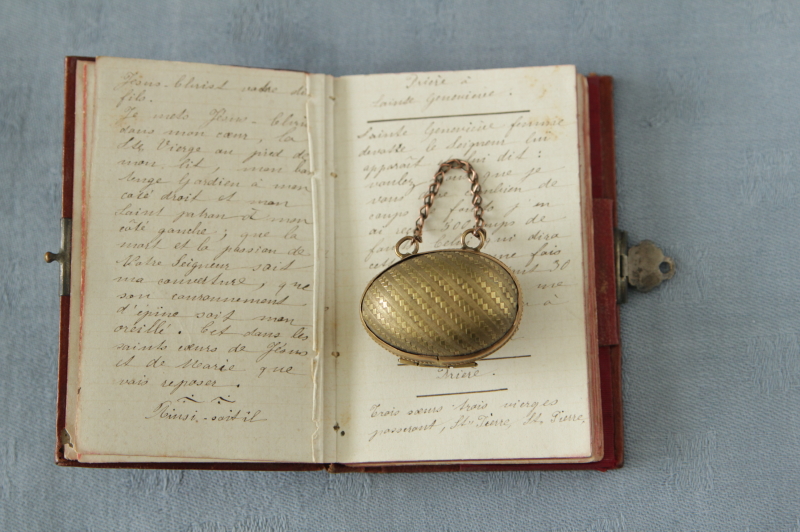 Jésus-Christ votre
fils.
Je mets Jésus-Chris
dans mon cœur, la
Ste Vierge au pied de
mon lit, mon bon
Ange Gardien à mon
coté droit et mon
Saint patron à mon
côté gauche ; que la
mort et la passion de
Notre Seigneur soit
ma couverture, que
son couronnement
d'épine soit mon
oreillé. Cet dans les
saints cœurs de Jésus
et de Marie que
vais reposer.
Ainsi-soit-il
Prière à
Sainte Geneviève.
Sainte Geneviève
le Seigneur lui
apparaît lui dit :
voulez je
vous combien de
coups j'en
ai 500 de
dira
fois
30
me
à
Prière.
Trois sœurs trois vierges
passerent, St Pierre, St Pierre,